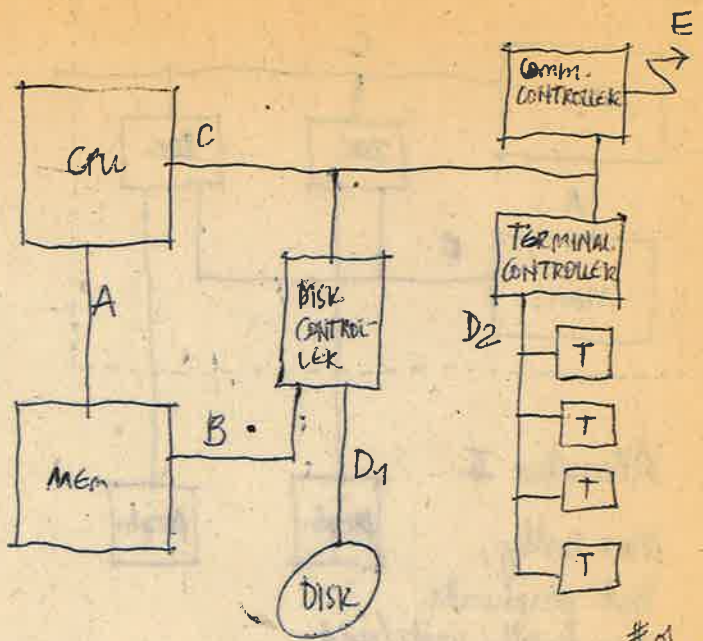 E
COMM.
CONTROLLER
CPU
C
TERMINAL
CONTROLLER
A
DISK
CONTROL-
LER
D2
T
B
D1
T
MEM
T
T
DISK